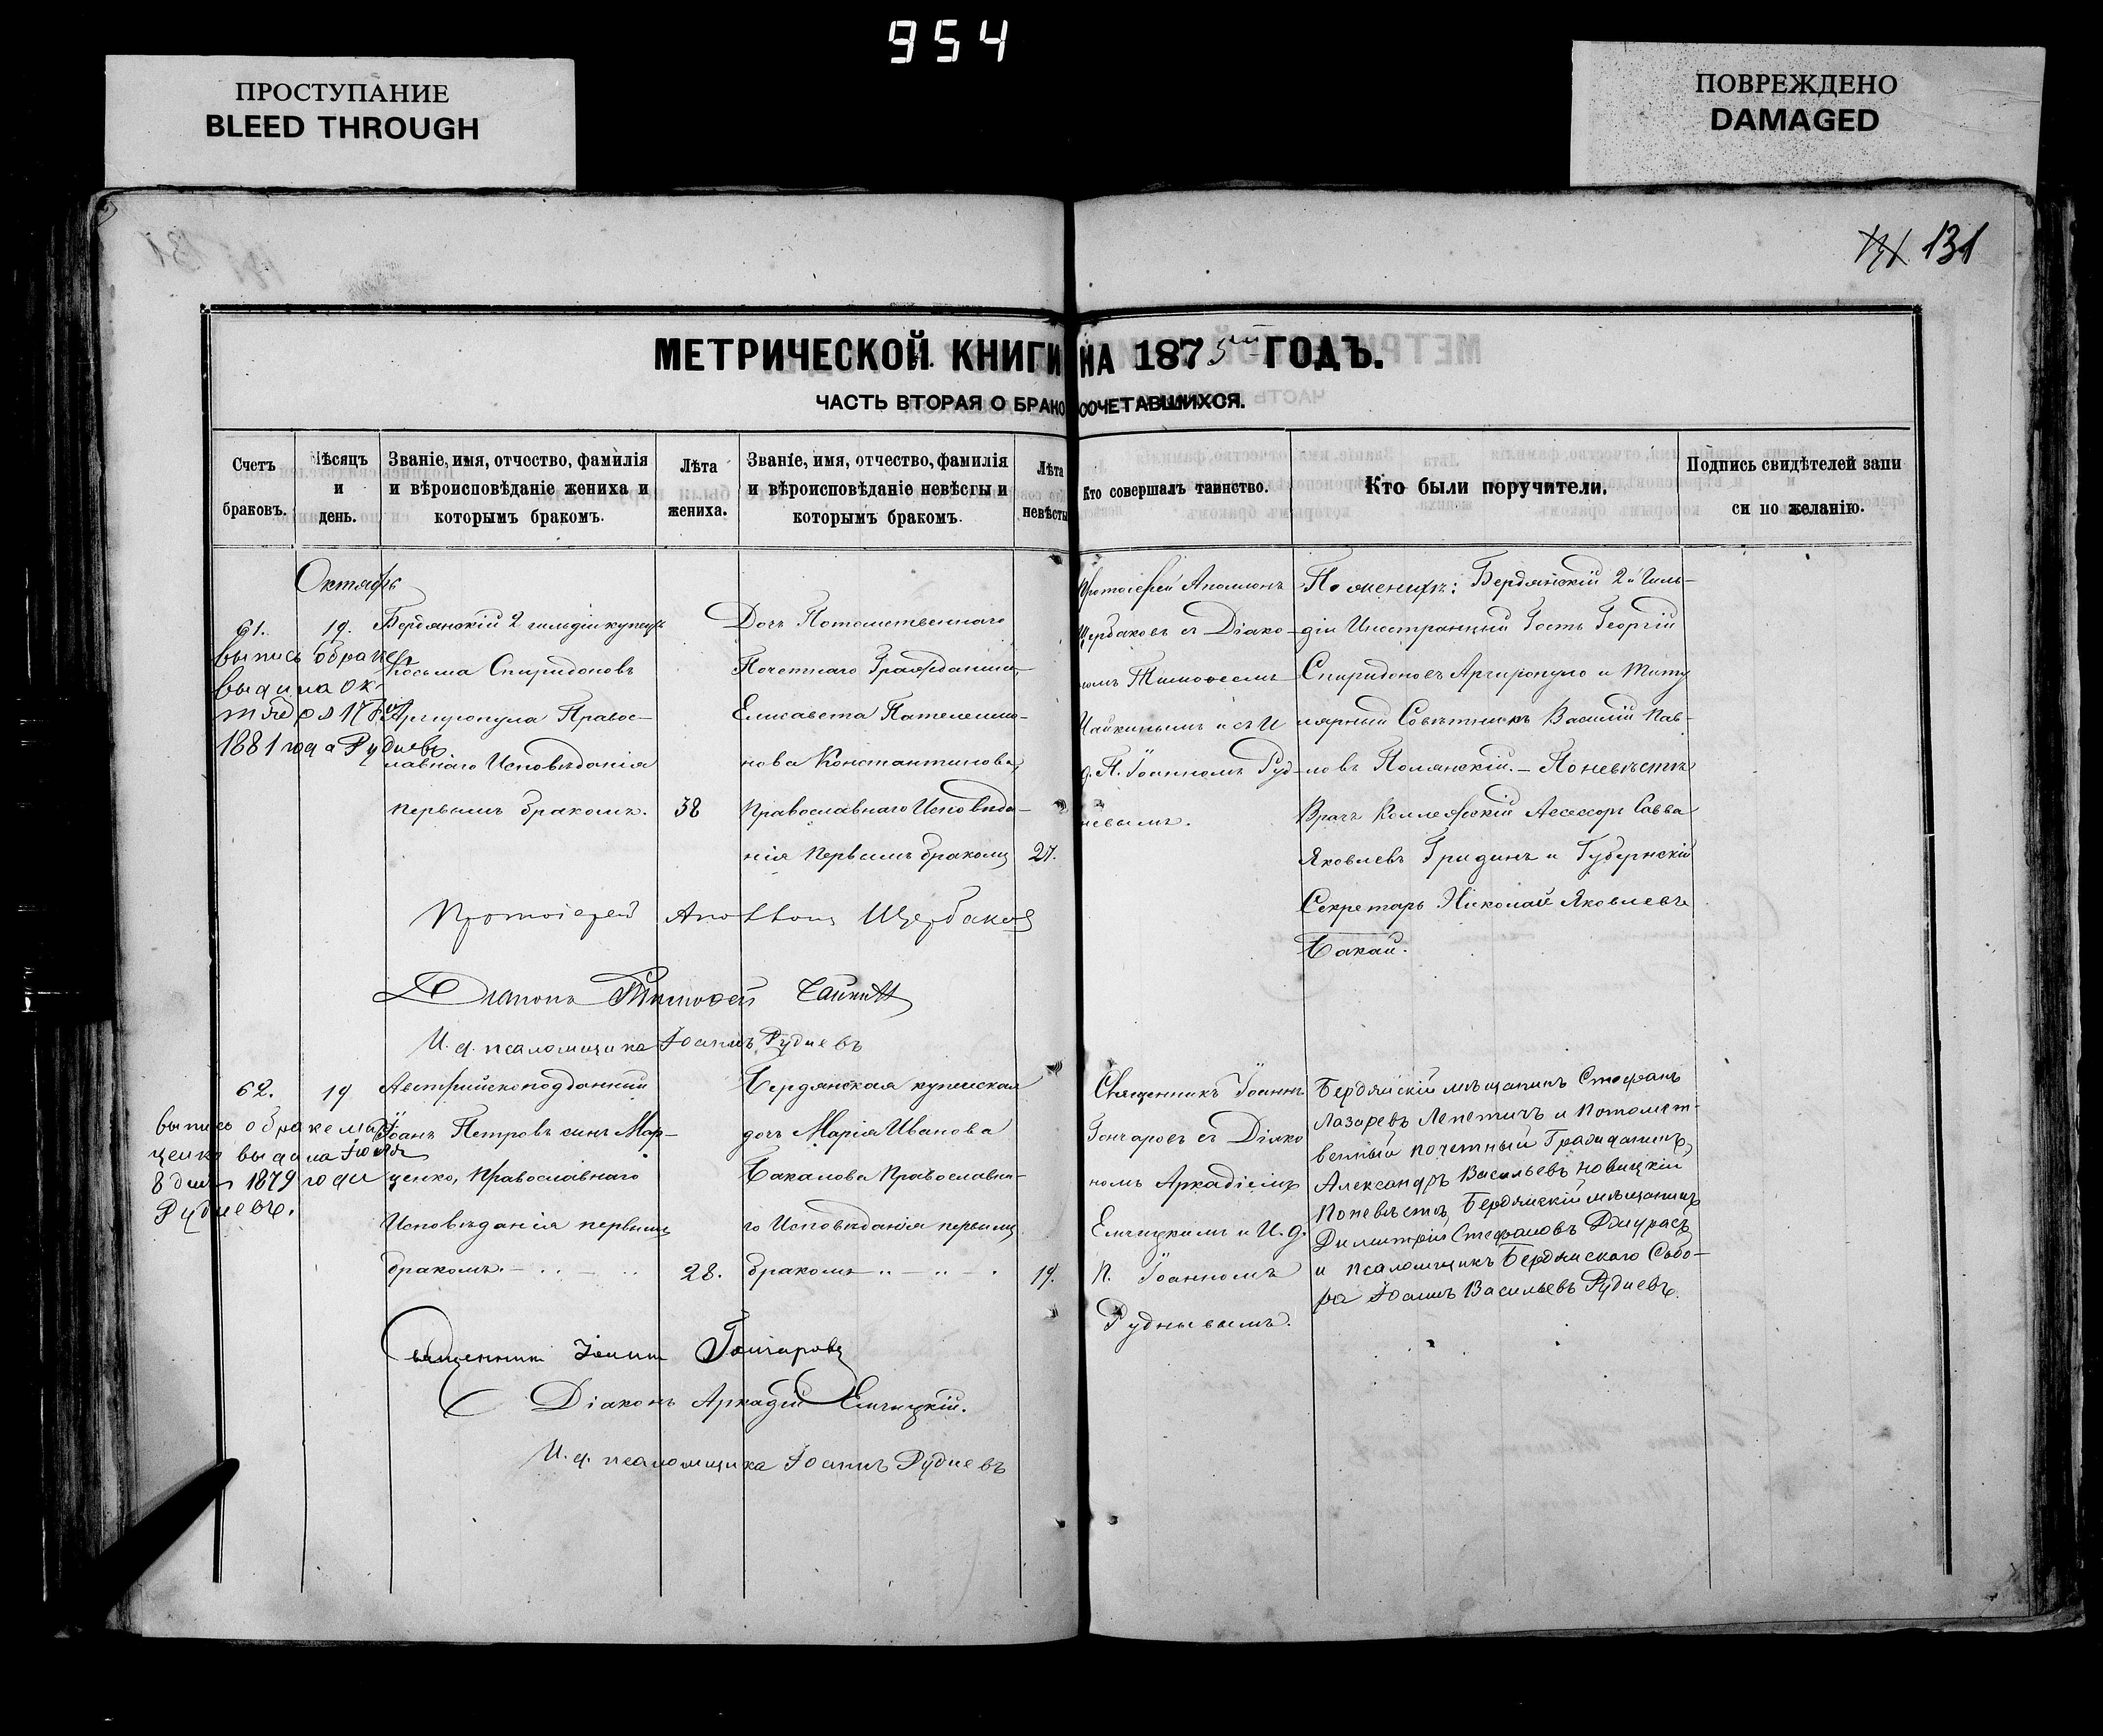 954
ПРОСТУПАНИЕ
BLEED THROUGH
ПОВРЕЖДЕНО
DAMAGED
131
МЕТРИЧЕСКОЙ КНИГИ НА 1875 ГОДЪ.
ЧАСТЬ ВТОРАЯ О БРАКОСОЧЕТАВШИХСЯ.
Счетъ
браковъ.
Мѣсяцъ
и
день.
Званіе, имя, отчество, фамилія
и вѣроисповѣданіе жениха и
которымъ бракомъ.
Лѣта
жениха.
Званіе, имя, отчество, фамилія
и вѣроисповѣданіе невѣсты и
которымъ бракомъ.
Лѣта
невѣсты
Кто совершалъ таинство.
Кто были поручители.
Подпись свидѣтелей запи
си по желанію.
Октябрь
61.
19.
выпись о браке
выдана ок-
тября 17 дня
1881 года Рудневъ
Бердянскій 2 гильдіи купецъ
Косьма Спиридоновъ
Аргиропуло Правос-
лавнаго Исповѣданія
первымъ бракомъ.
38
Дочь Потомственнаго
Почетнаго Гражданина
Елисавета
нова Константинова,
Православнаго Исповѣда-
нія первымъ бракомъ
27.
Протоіерей Аполлонъ
Щербаковъ съ Діако-
номъ Тимоѳеемъ
Чайкинымъ и съ И
д. П. Іоанномъ Руд-
невымъ.
По женихѣ: Бердянскій 2й Гиль-
діи Иностранный Гость Георгій
Спиридоновъ Аргиропуло и Титу
лярный Совѣтникъ Василій Пав-
ловъ Полянскій. – По невѣстѣ
Врачъ Коллежскій Ассесоръ Савва
Яковлевъ Гридинъ и Губернскій
Секретарь Николай Яковлевъ
Бакай.
Протоіерей Аполлонъ Щербаковъ
Діаконъ Тимоѳей Чайкинъ
И. д. псаломщика Іоаннъ Рудневъ
62.
19
выпись о браке Мар
ценко выдана Іюля
8 дня 1879 года
Рудневъ.
Австрійскоподданный
Іоанъ Петровъ сынъ Мар-
ценко, Православнаго
Исповѣданія первымъ
бракомъ.
28.
Бердянская купеческая
дочь Марія Иванова
Бакалова Православна-
го Исповѣданія первымъ
бракомъ
19.
Священникъ Іоаннъ
Гончаровъ съ Діако
номъ Аркадіемъ
Елчицкимъ и И. д.
П. Іоанномъ
Рудневымъ.
Бердянскій мѣщанинъ Стефанъ
Лазаревъ Лепетичъ и потомст-
венный почетный Гражданинъ
Александръ Васильевъ Новицкій
По невѣстѣ, Бердянскій мѣщанинъ
Димитрій Стефановъ
и псаломщикъ Бердянскаго Собо-
ра Іоаннъ Васильевъ Рудневъ.
Священникъ Іоаннъ Гончаровъ
Діаконъ Аркадій Елчицкій.
И. д. псаломщика Іоаннъ Рудневъ